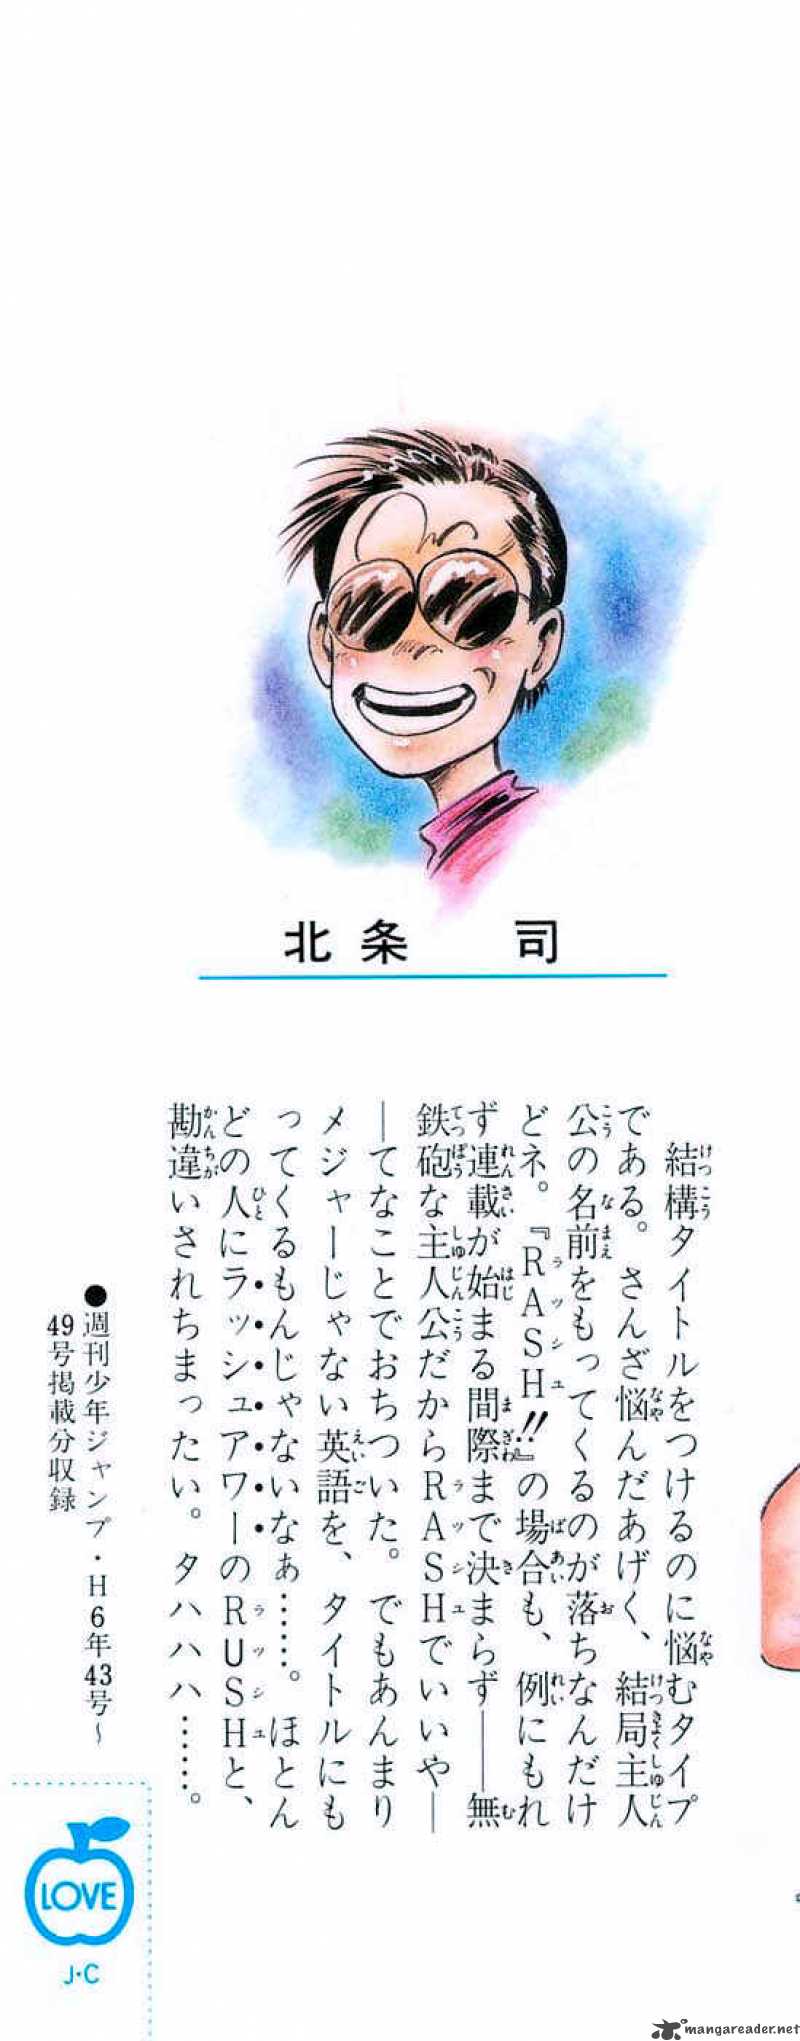 北条 司
結構タイトルをつけるのに悩むタイプ
である。さんざ悩んだあげく、結局主人
公の名前をもってくるのが落ちなんだけ
どネ。『RASH!!』の場合も、例にもれ
ず連載が始まる間際まで決まらず――無
鉄砲な主人公だからRASHでいいや―
―てなことでおちついた。でもあんまり
メジャーじゃない英語を、タイトルにも
ってくるもんじゃないなぁ……。ほとん
どの人にラッシュアワーのRUSHと、
勘違いされちまったい。タハハハ……。
●週刊少年ジャンプ・H6年43号~
49号掲載分収録
LOVE
J・C
mangareader.net